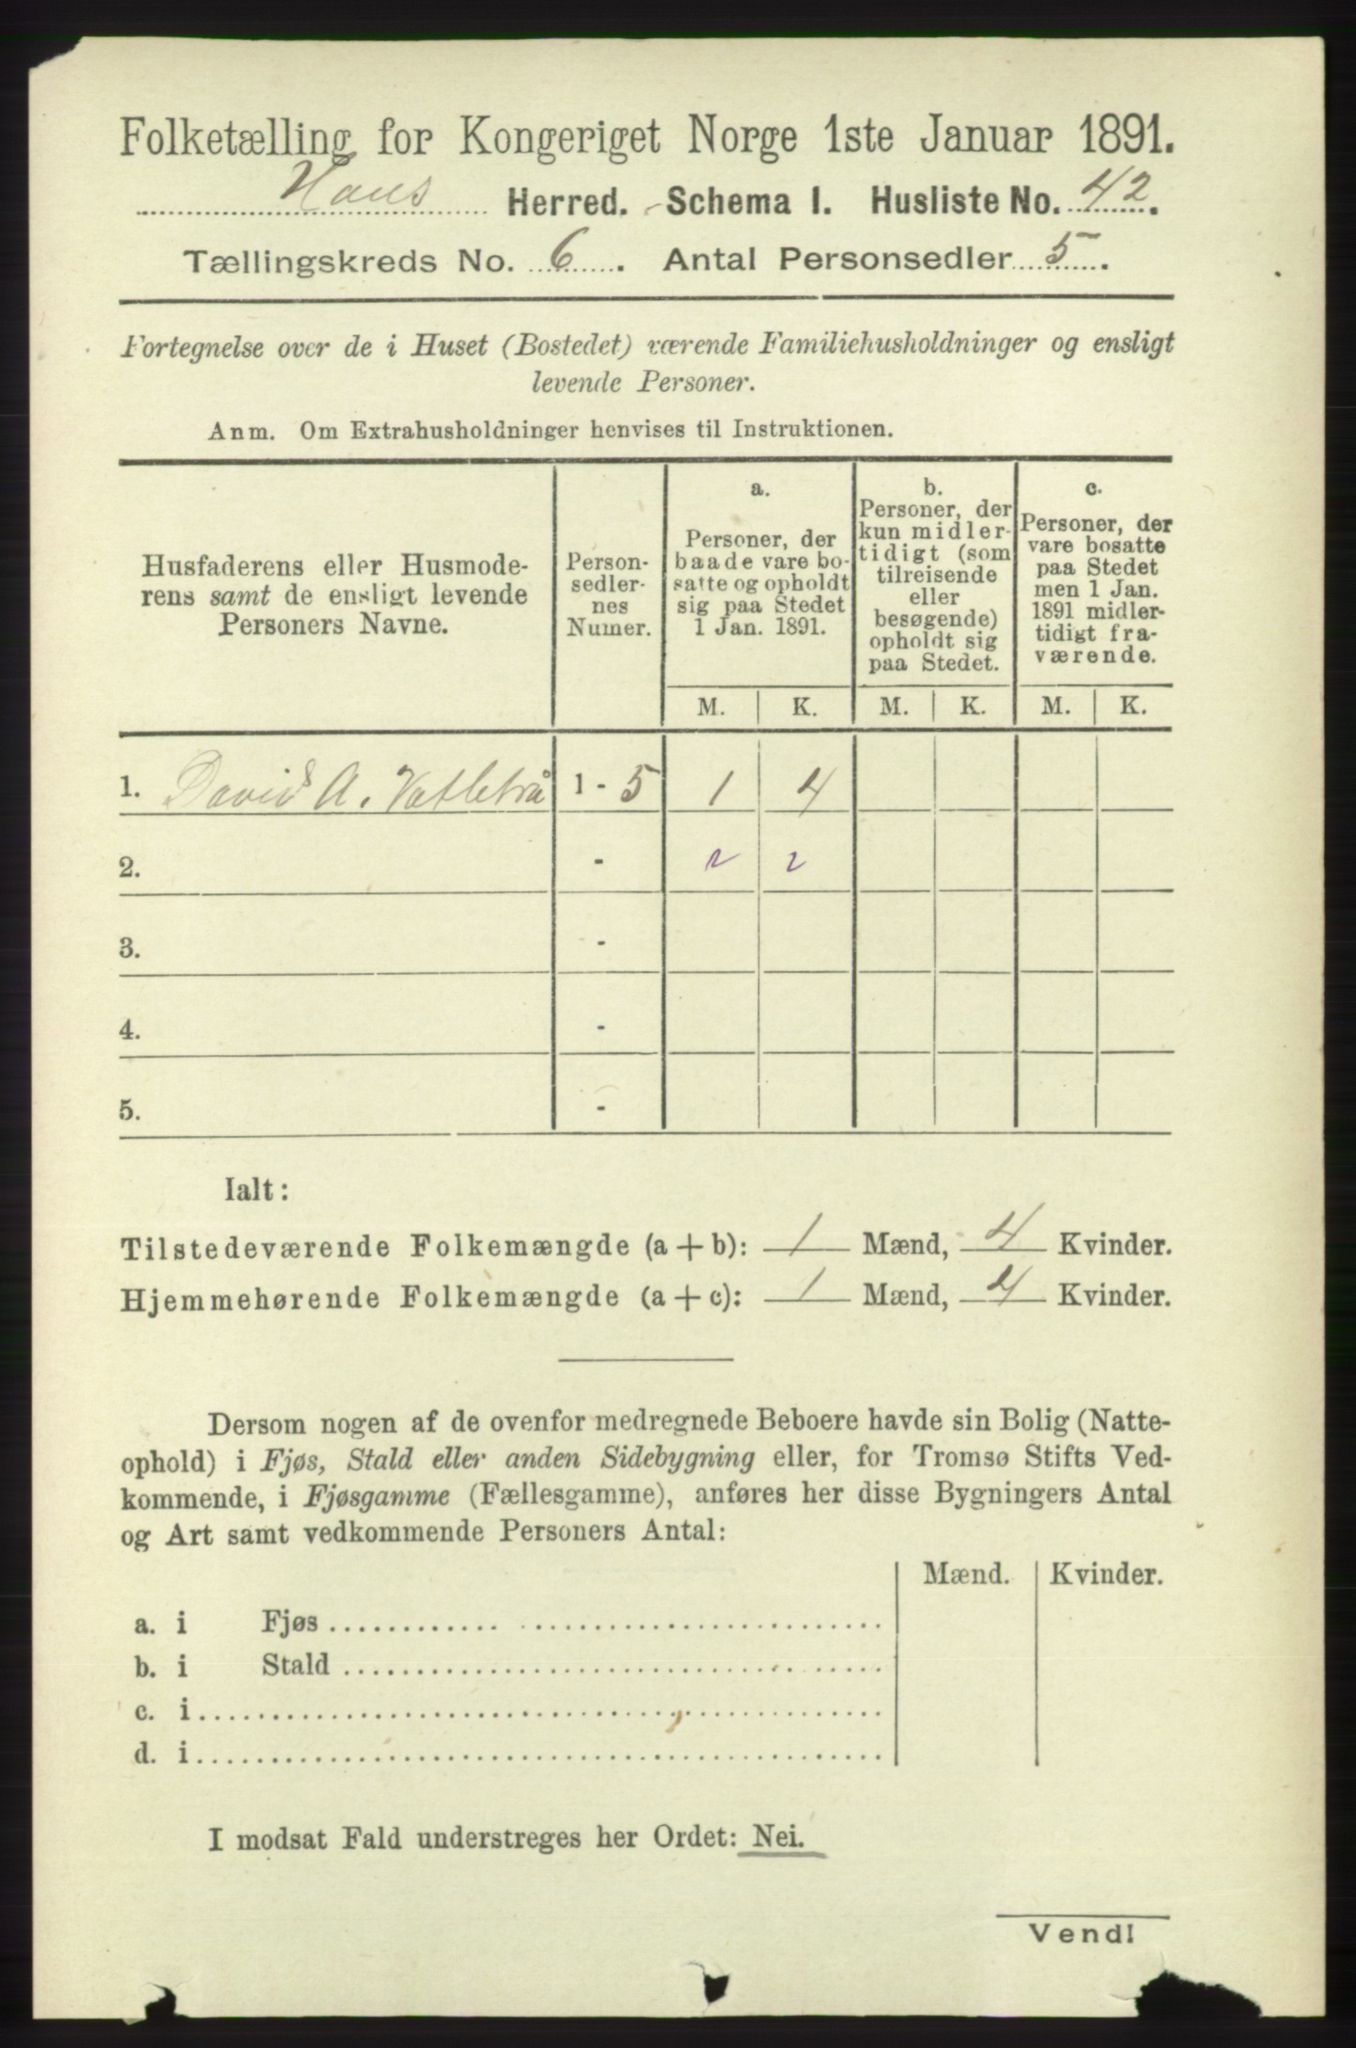 Folketælling for Kongeriget Norge 1ste Januar 1891.
Haus Herred. Schema I. Husliste No. 42.
Tællingskreds No. 6. Antal Personsedler 5.
Fortegnelse over de i Huset (Bostedet) værende Familiehusholdninger og ensligt
levende Personer.
Anm. Om Extrahusholdninger henvises til Instruktionen.
Husfaderens eller Husmode-
rens samt de ensligt levende
Personers Navne.
Person-
sedler-
nes
Numer.
a.
Personer, der
baade vare bo-
satte og opholdt
sig paa Stedet
1 Jan. 1891.
b.
Personer, der
kun midler-
tidigt (som
tilreisende
eller
besøgende)
opholdt sig
paa Stedet.
c.
Personer, der
vare bosatte
paa Stedet
men 1 Jan.
1891 midler-
tidigt fra-
værende.
M. K. M. K. M. K.
1. David A. Vatletrå 1 - 5 1 4
2. - 2 2
3. -
4. -
5. -
Ialt:
Tilstedeværende Folkemængde (a + b): 1 Mænd, 4 Kvinder.
Hjemmehørende Folkemængde (a + c): 1 Mænd, 4 Kvinder.
Dersom nogen af de ovenfor medregnede Beboere havde sin Bolig (Natte-
ophold) i Fjøs, Stald eller anden Sidebygning eller, for Tromsø Stifts Ved-
kommende, i Fjøsgamme (Fællesgamme), anføres her disse Bygningers Antal
og Art samt vedkommende Personers Antal:
Mænd. Kvinder.
a. i Fjøs
b. i Stald
c. i
d. i
I modsat Fald understreges her Ordet: Nei.
Vend!